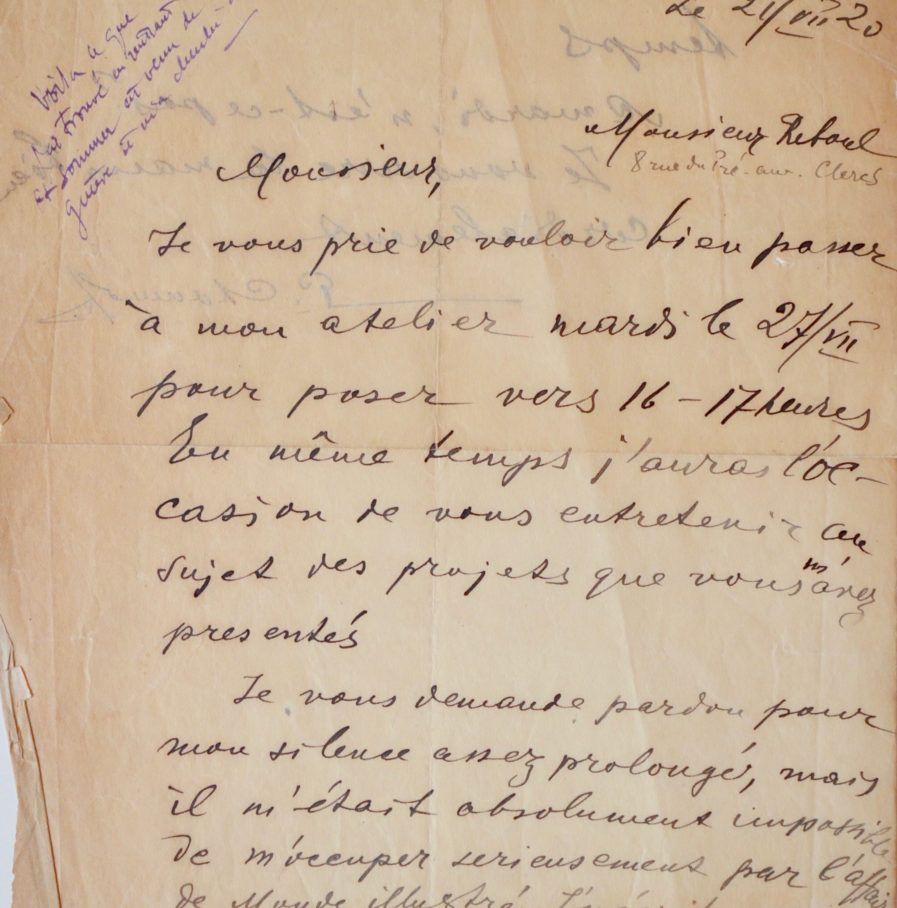 Le 21/VII 20
Voilà ce que
j'ai trouvé en rentrant
et Sommer est venu de
Monsieur Reboul
8 rue du Pré-aux-Clercs
Monsieur,
Je vous prie de vouloir bien passer
à mon atelier mardi le 27/VII
pour poser vers 16-17 heures
En même temps j'auras l'oc-
casion de vous entretenir au
sujet des projets que vous m'avez
presentés
Je vous demande pardon pour
mon silence assez prolongé, mais
il m'était absolument impossible
de m'occuper serieusement par l'affaire
de Monde illustré